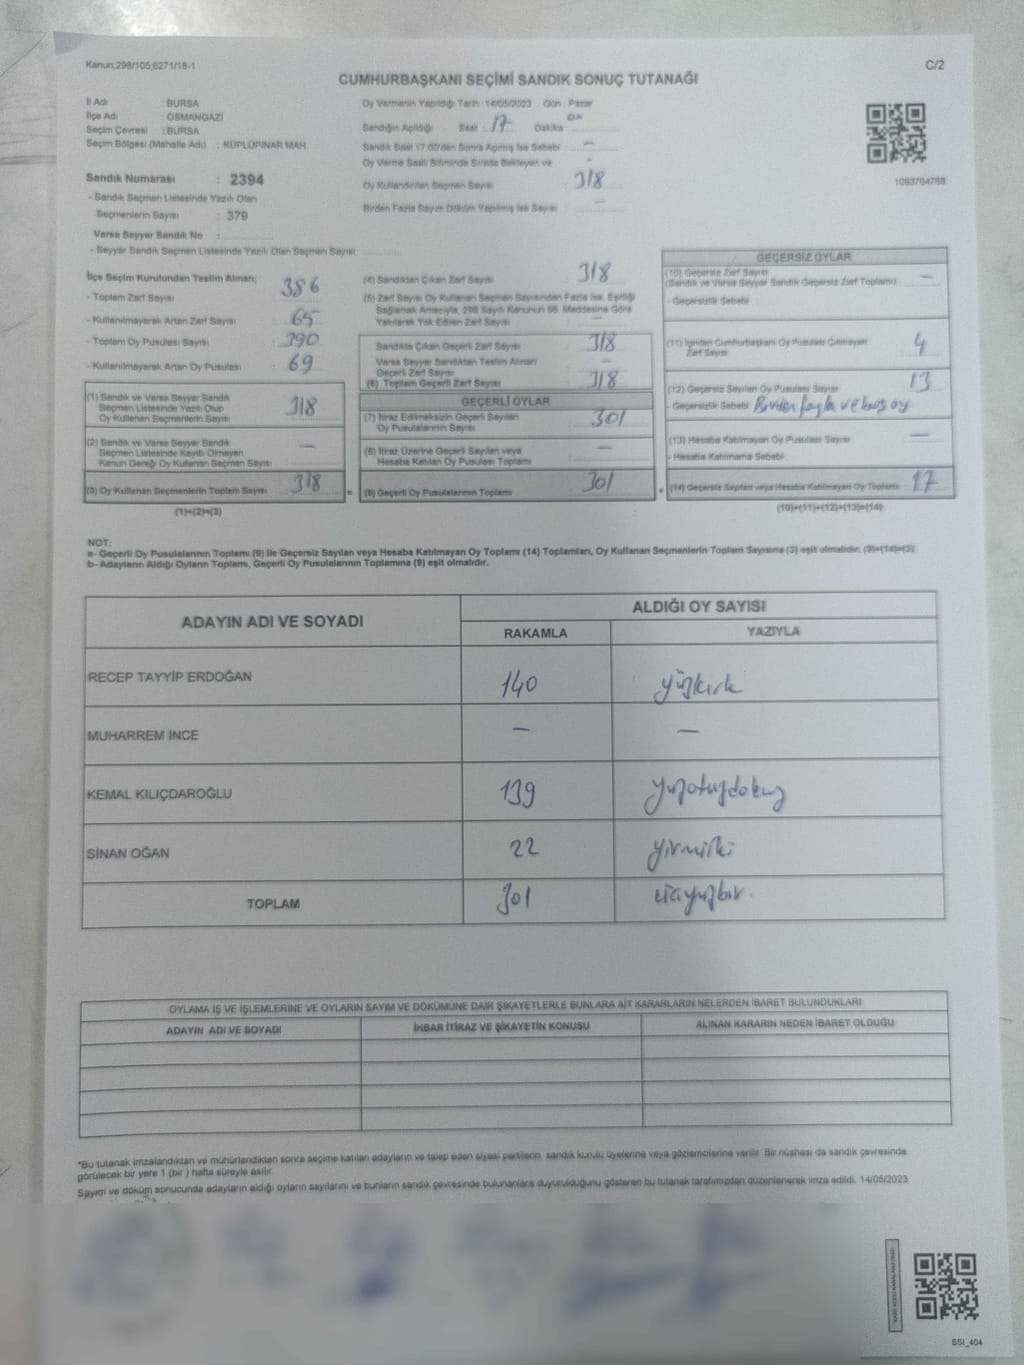 Kanun;298/105;6271/18-1
C/2
CUMHURBAŞKANI SEÇİMİ SANDIK SONUÇ TUTANAĞI
İl Adı : BURSA
İlçe Adı : OSMANGAZİ
Seçim Çevresi : BURSA
Seçim Bölgesi (Mahalle Adı) : KÜPLÜPINAR MAH.
Sandık Numarası : 2394
- Sandık Seçmen Listesinde Yazılı Olan
Seçmenlerin Sayısı : 379
Varsa Seyyar Sandık No :
- Seyyar Sandık Seçmen Listesinde Yazılı Olan Seçmen Sayısı:
Oy Vermenin Yapıldığı Tarih : 14/05/2023 Gün : Pazar
Sandığın Açıldığı Saat : 17 Dakika :
Sandık Saat 17:00'den Sonra Açılmış İse Sebebi : -
Oy Verme Saati Bitiminde Sırada Bekleyen ve -
Oy Kullandırılan Seçmen Sayısı : 318
Birden Fazla Sayım Döküm Yapılmış İse Sayısı : -
1093784768
İlçe Seçim Kurulundan Teslim Alınan;
- Toplam Zarf Sayısı : 386
- Kullanılmayarak Artan Zarf Sayısı : 65
- Toplam Oy Pusulası Sayısı : 390
- Kullanılmayarak Artan Oy Pusulası : 69
(1) Sandık ve Varsa Seyyar Sandık
Seçmen Listesinde Yazılı Olup
Oy Kullanan Seçmenlerin Sayısı : 318
(2) Sandık ve Varsa Seyyar Sandık
Seçmen Listesinde Kayıtlı Olmayan
Kanun Gereği Oy Kullanan Seçmen Sayısı : -
(3) Oy Kullanan Seçmenlerin Toplam Sayısı : 318
(1)+(2)=(3)
(4) Sandıktan Çıkan Zarf Sayısı : 318
(5) Zarf Sayısı Oy Kullanan Seçmen Sayısından Fazla İse, Eşitliği
Sağlamak Amacıyla, 298 Sayılı Kanunun 98. Maddesine Göre
Yakılarak Yok Edilen Zarf Sayısı : -
Sandıkta Çıkan Geçerli Zarf Sayısı : 318
Varsa Seyyar Sandıktan Teslim Alınan
Geçerli Zarf Sayısı : -
(6) Toplam Geçerli Zarf Sayısı : 318
GEÇERLİ OYLAR
(7) İtiraz Edilmeksizin Geçerli Sayılan
Oy Pusulalarının Sayısı : 301
(8) İtiraz Üzerine Geçerli Sayılan veya
Hesaba Katılan Oy Pusulası Toplamı : -
(9) Geçerli Oy Pusulalarının Toplamı : 301
GEÇERSİZ OYLAR
(10) Geçersiz Zarf Sayısı
(Sandık ve Varsa Seyyar Sandık Geçersiz Zarf Toplamı) : -
- Geçersizlik Sebebi :
(11) İçinden Cumhurbaşkanı Oy Pusulası Çıkmayan
Zarf Sayısı : 4
(12) Geçersiz Sayılan Oy Pusulası Sayısı : 13
- Geçersizlik Sebebi : Birden fazla ve boş oy
(13) Hesaba Katılmayan Oy Pusulası Sayısı : -
- Hesaba Katılmama Sebebi :
(14) Geçersiz Sayılan veya Hesaba Katılmayan Oy Toplamı : 17
(10)+(11)+(12)+(13)=(14)
NOT:
a- Geçerli Oy Pusulalarının Toplamı (9) ile Geçersiz Sayılan veya Hesaba Katılmayan Oy Toplamı (14) Toplamları, Oy Kullanan Seçmenlerin Toplam Sayısına (3) eşit olmalıdır. (9)+(14)=(3)
b- Adayların Aldığı Oyların Toplamı, Geçerli Oy Pusulalarının Toplamına (9) eşit olmalıdır.
ADAYIN ADI VE SOYADI
ALDIĞI OY SAYISI
RAKAMLA YAZIYLA
RECEP TAYYİP ERDOĞAN 140 yüzkırk
MUHARREM İNCE - -
KEMAL KILIÇDAROĞLU 139 yuzotuzdokuz
SİNAN OĞAN 22 yirmiiki
TOPLAM 301 üçyüzbir.
OYLAMA İŞ VE İŞLEMLERİNE VE OYLARIN SAYIM VE DÖKÜMÜNE DAİR ŞİKAYETLERLE BUNLARA AİT KARARLARIN NELERDEN İBARET BULUNDUKLARI
ADAYIN ADI VE SOYADI İHBAR İTİRAZ VE ŞİKAYETİN KONUSU ALINAN KARARIN NEDEN İBARET OLDUĞU
*Bu tutanak imzalandıktan ve mühürlendikten sonra seçime katılan adayların ve talep eden siyasi partilerin, sandık kurulu üyelerine veya gözlemcilerine verilir. Bir nüshası da sandık çevresinde
görülecek bir yere 1 (bir ) hafta süreyle asılır.
Sayım ve döküm sonucunda adayların aldığı oyların sayılarını ve bunların sandık çevresinde bulunanlara duyurulduğunu gösteren bu tutanak tarafımızdan düzenlenerek imza edildi. 14/05/2023
SSI_404